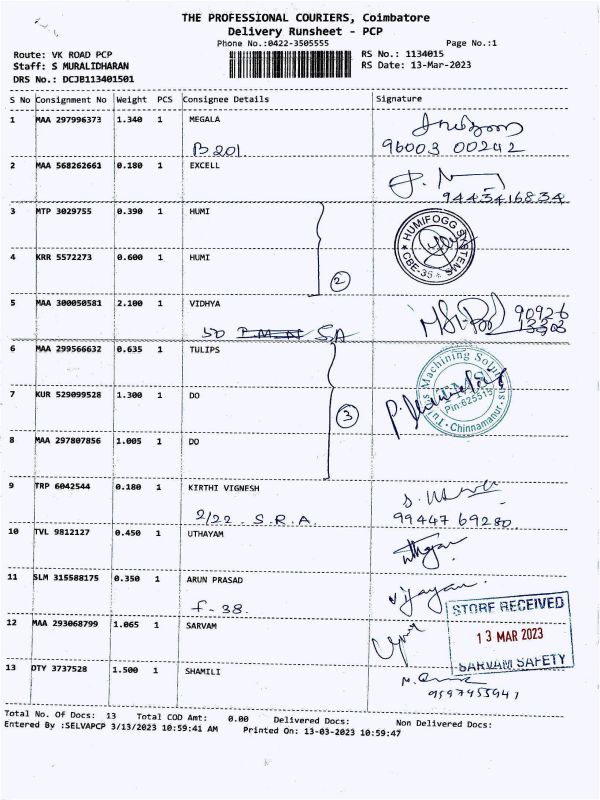 THE PROFESSIONAL COURIERS, Coimbatore
Delivery Runsheet - PCP
Phone No.:0422-3505555 Page No.:1
Route: VK ROAD PCP RS No.: 1134015
Staff: S MURALIDHARAN RS Date: 13-Mar-2023
DRS No.: DCJB113401501
S No Consignment No Weight PCS Consignee Details Signature
1 MAA 297996373 1.340 1 MEGALA
B 201 96003 00242
2 MAA 568262661 0.180 1 EXCELL
9443416834
3 MTP 3029755 0.390 1 HUMI
HUMIFOGG SYSTEMS
* CBE-35 *
4 KRR 5572273 0.600 1 HUMI
2
5 MAA 300050581 2.100 1 VIDHYA
90926
13308
S.A
6 MAA 299566632 0.635 1 TULIPS
Tulips Machining Solutions
Pin:625515
Chinnamanur
7 KUR 529099528 1.300 1 DO
3
8 MAA 297807856 1.005 1 DO
9 TRP 6042544 0.180 1 KIRTHI VIGNESH
2/22 S.R.A. 99447 69280
10 TVL 9812127 0.450 1 UTHAYAM
11 SLM 315588175 0.350 1 ARUN PRASAD
f-38. Vijayan
STORE RECEIVED
12 MAA 293068799 1.065 1 SARVAM
13 MAR 2023
SARVAM SAFETY
13 DTY 3737528 1.500 1 SHAMILI
9597455941
Total No. Of Docs: 13 Total COD Amt: 0.00 Delivered Docs: Non Delivered Docs:
Entered By :SELVAPCP 3/13/2023 10:59:41 AM Printed On: 13-03-2023 10:59:47